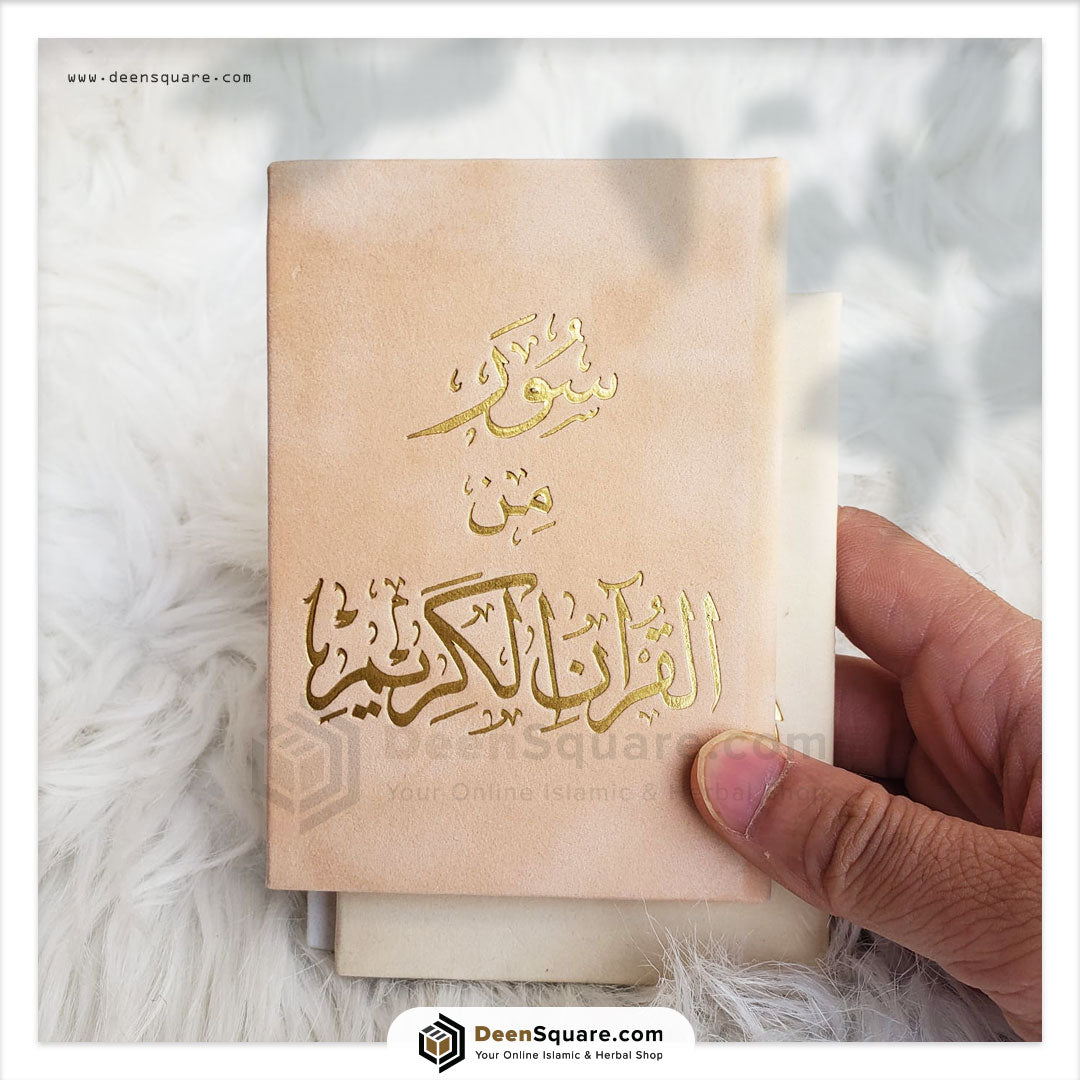 www.deensquare.com
سُوَر
مِن
القُرآنِ الكَرِيْمِ
DeenSquare.com
Your Online Islamic & Herbal Shop
DeenSquare.com
Your Online Islamic & Herbal Shop